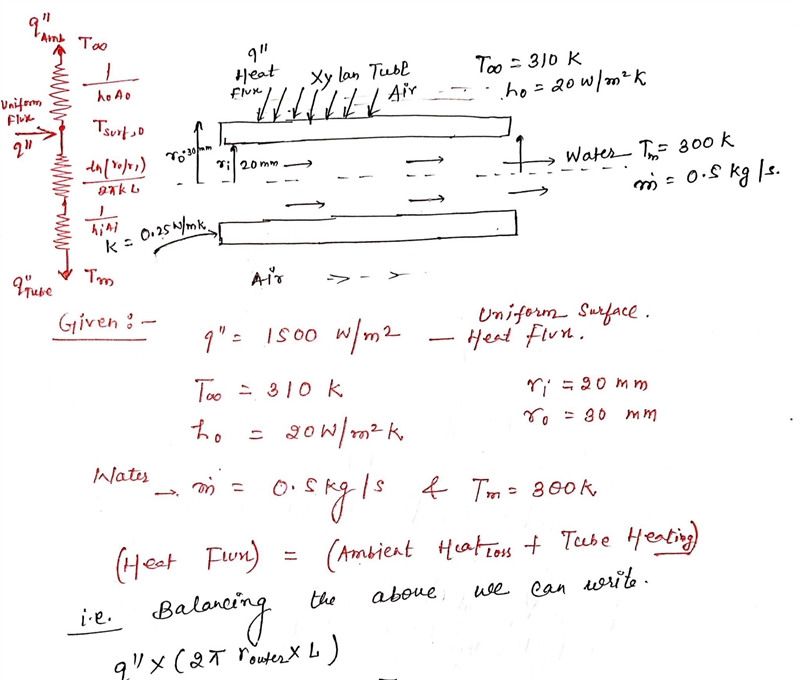 q"Amb T∞
1
h₀A₀
Uniform
Flux
q"
Tsurf,0
ln(r₀/r₁)
2πkL
1
hᵢAᵢ
q"Tube Tm
q"
Heat
Flux
Xylan Tube
Air
T∞ = 310 K
h₀ = 20 W/m²K
r₀=30mm
rᵢ 20mm
Water Tm = 300 K
ṁ = 0.5 kg/s.
K = 0.25W/mk
Air
Given :-
q" = 1500 W/m2 — Uniform Surface.
Heat Flux.
T∞ = 310 K
rᵢ = 20 mm
h₀ = 20W/m²K
r₀ = 30 mm
Water → ṁ = 0.5kg/s & Tm = 300K
(Heat Flux) = (Ambient Heat Loss + Tube Heating)
i.e. Balancing the above, we can write.
q" × (2π router × L)